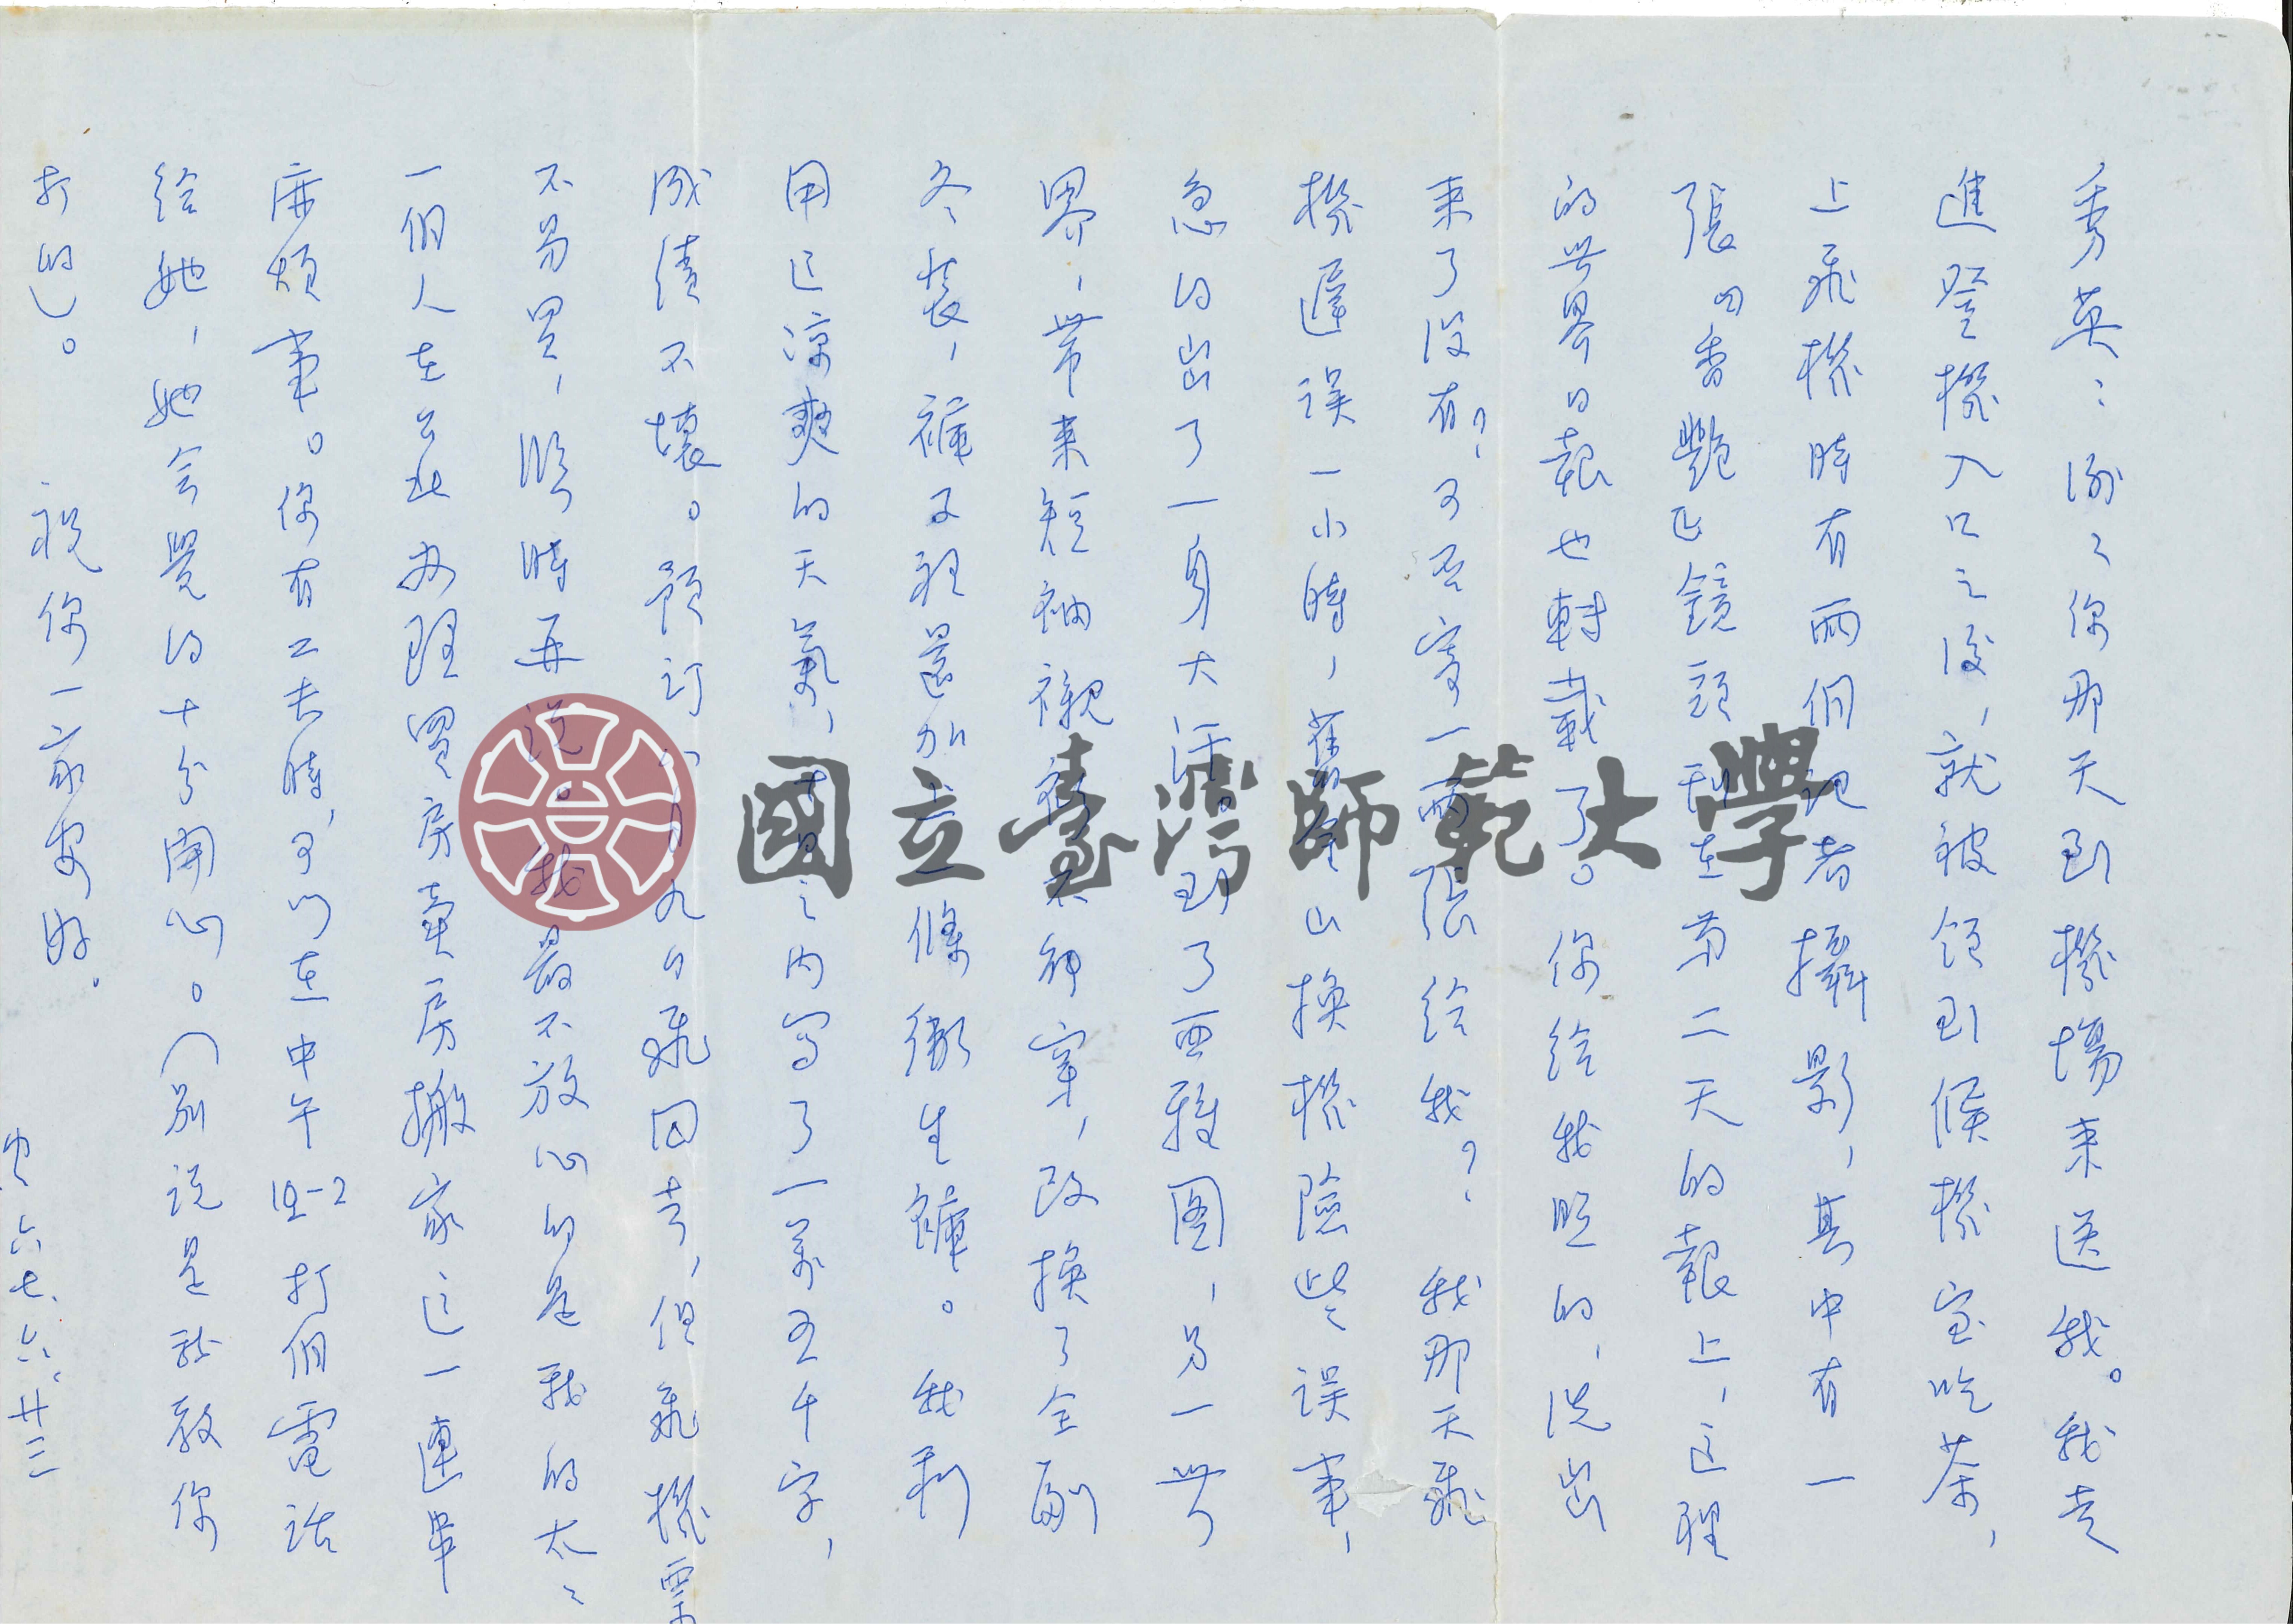 秀英：謝謝你那天到機場來送我。我走
進登機入口之後，就被領到候機室吃茶，
上飛機時有兩個記者攝影，其中有一
張回香艷鏡頭刊在第二天的報上，這裡
的世界日報也轉載了。你給我照的，洗出
來了沒有？可否寄一兩張給我？我那天飛
機遲誤一小時，舊金山換機險些誤事，
急的出了一身大汗。到了西雅圖，另一世
界，帶來短袖襯衫不能穿，改換了全副
冬裝，褲子裡還加上一條衛生褲。我利
用這涼爽的天氣，十日之內寫了一萬五千字，
成績不壞。預訂八月九日飛回去，但飛機票
不易買，臨時再說。我最不放心的是我的太太
一個人在台北辦理買房賣房搬家這一連串
麻煩事。你有工夫時，可以在中午12打個電話
給她，她會覺的十分開心。（別說是我教你
打的。）祝你一家安好。
六七、六、廿三
國立臺灣師範大學